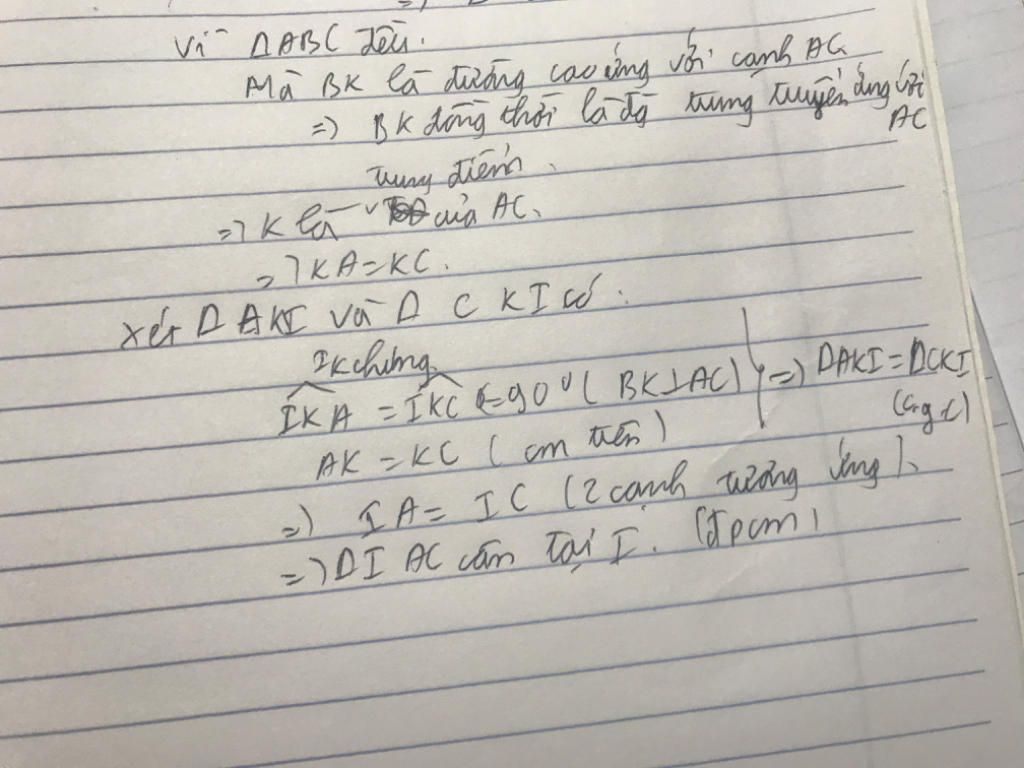 Vì ΔABC đều.
Mà BK là đường cao ứng với cạnh AC
=> BK đồng thời là đg trung tuyến ứng với
AC
trung điểm
=> K là của AC.
=> KA = KC.
Xét Δ AKI và Δ CKI có:
IK chung
IKA = IKC (=90° (BK⊥AC) } => ΔAKI = ΔCKI
(c.g.c)
AK = KC (cm trên)
=> IA = IC (2 cạnh tương ứng).
=> ΔIAC cân tại I. (đpcm)